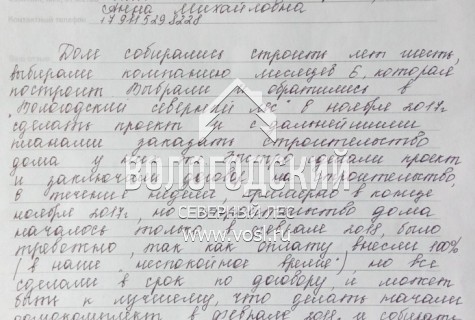 Анна Михайловна
Контактный телефон:
+79115298228
Дом собирались строить лет шесть,
выбирали компанию месяцев 5, которая
построит. Выбрали и обратились в
"Вологодский северный лес" в ноябре 2017.
сделать проект и с дальнейшими
планами заказать строительство
дома у них. Быстро сделали проект
и заключили договор на строительство,
в течение недели, в конце
ноября 2017г, но строительство дома
началось только в феврале 2018, было
тревожно, так как оплату внесли 100%
(в наше "неспокойное время"), но все
сделали в срок по договору, и может
быть к лучшему, что делать начали
домокомплект в феврале 2018 и собирать
ВОЛОГОДСКИЙ
СЕВЕРНЫЙ ЛЕС
www.vosl.ru